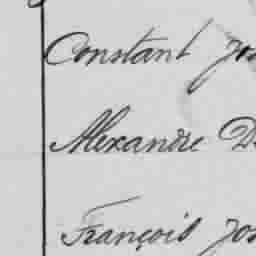 Constant
Alexandre
François